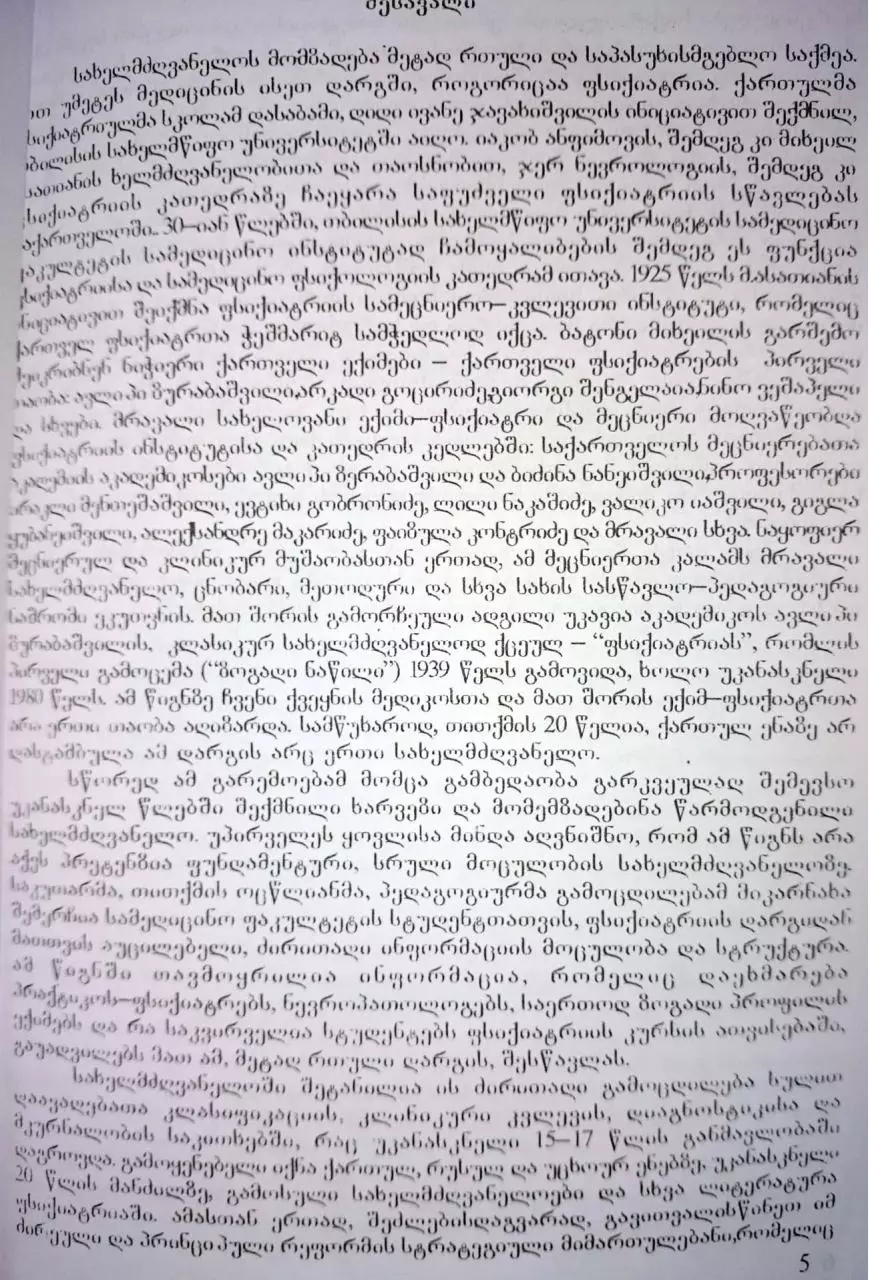 შესავალი
სახელმძღვანელოს მომზადება მეტად რთული და საპასუხისმგებლო საქმეა.
უმეტეს მედიცინის ისეთ დარგში, როგორიცაა ფსიქიატრია. ქართულმა
სკოლამ დასაბამი, დიდი ივანე ჯავახიშვილის ინიციატივით შექმნილ,
სახელმწიფო უნივერსიტეტში აიღო. იაკობ ანფიმოვის, შემდეგ კი მიხეილ
ხელმძღვანელობითა და თაოსნობით, ჯერ ნევროლოგიის, შემდეგ კი
კათედრაზე ჩაეყარა საფუძველი ფსიქიატრიის სწავლებას
30–იან წლებში, თბილისის სახელმწიფო უნივერსიტეტის სამედიცინო
სამედიცინო ინსტიტუტად ჩამოყალიბების შემდეგ ეს ფუნქცია
და სამედიცინო ფსიქოლოგიის კათედრამ ითავა. 1925 წელს მ.ასათიანის
შეიქმნა ფსიქიატრიის სამეცნიერო–კვლევითი ინსტიტუტი, რომელიც
ქართველ ფსიქიატრთა ჭეშმარიტ სამჭედლოდ იქცა. ბატონი მიხეილის გარშემო
ნიჭიერი ქართველი ექიმები – ქართველი ფსიქიატრების პირველი
ავლიპი ზურაბაშვილი,არკადი გოცირიძე,გიორგი შენგელაია,ნინო ვეშაპელი
და სხვები. მრავალი სახელოვანი ექიმი–ფსიქიატრი და მეცნიერი მოღვაწეობდა
ფსიქიატრიის ინსტიტუტისა და კათედრის კედლებში: საქართველოს მეცნიერებათა
აკადემიის აკადემიკოსები ავლიპი ზურაბაშვილი და ბიძინა ნანეიშვილი,პროფესორები
მენთეშაშვილი, ევტიხი გობრონიძე, ლილი ნაკაშიძე, ვალიკო იაშვილი, გიგლა
ალექსანდრე მაკარიძე, ფაიზულა კონტრიძე და მრავალი სხვა. ნაყოფიერ
მეცნიერულ და კლინიკურ მუშაობასთან ერთად, ამ მეცნიერთა კალამს მრავალი
სახელმძღვანელო, ცნობარი, მეთოდური და სხვა სახის სასწავლო–პედაგოგიური
საშრომი ეკუთვნის. მათ შორის გამორჩეული ადგილი უკავია აკადემიკოს ავლიპი
ზურაბაშვილის, კლასიკურ სახელმძღვანელოდ ქცეულ – “ფსიქიატრიას”, რომლის
პირველი გამოცემა (“ზოგადი ნაწილი”) 1939 წელს გამოვიდა, ხოლო უკანასკნელი
1980 წელს. ამ წიგნზე ჩვენი ქვეყნის მედიკოსთა და მათ შორის ექიმ–ფსიქიატრთა
არა ერთი თაობა აღიზარდა. სამწუხაროდ, თითქმის 20 წელია, ქართულ ენაზე არ
დასტამბულა ამ დარგის არც ერთი სახელმძღვანელო.
სწორედ ამ გარემოებამ მომცა გამბედაობა გარკვეულად შემევსო
უკანასკნელ წლებში შექმნილი ხარვეზი და მომემზადებინა წარმოდგენილი
სახელმძღვანელო. უპირველეს ყოვლისა მინდა აღვნიშნო, რომ ამ წიგნს არა
აქვს პრეტენზია ფუნდამენტური, სრული მოცულობის სახელმძღვანელოზე.
საკუთარმა, თითქმის ოცწლიანმა, პედაგოგიურმა გამოცდილებამ მიკარნახა
შემერჩია სამედიცინო ფაკულტეტის სტუდენტთათვის, ფსიქიატრიის დარგიდან
მათთვის აუცილებელი, ძირითადი ინფორმაციის მოცულობა და სტრუქტურა.
ამ წიგნში თავმოყრილია ინფორმაცია, რომელიც დაეხმარება
პრაქტიკოს–ფსიქიატრებს, ნევროპათოლოგებს, საერთოდ ზოგადი პროფილის
ექიმებს და რა საკვირველია სტუდენტებს ფსიქიატრიის კურსის ათვისებაში,
გაუადვილებს მათ ამ, მეტად რთული დარგის, შესწავლას.
სახელმძღვანელოში შეტანილია ის ძირითადი გამოცდილება სულით
დაავადებათა კლასიფიკაციის, კლინიკური კვლევის, დიაგნოსტიკისა და
მკურნალობის საკითხებში, რაც უკანასკნელი 15–17 წლის განმავლობაში
დაგროვდა. გამოყენებული იქნა ქართულ, რუსულ და უცხოურ ენებზე, უკანასკნელი
20 წლის მანძილზე, გამოსული სახელმძღვანელოები და სხვა ლიტერატურა
ფსიქიატრიაში. ამასთან ერთად, შეძლებისდაგვარად, გავითვალისწინეთ იმ
ძირეული და პრინციპული რეფორმის სტრატეგიული მიმართულებანი,რომელიც
5